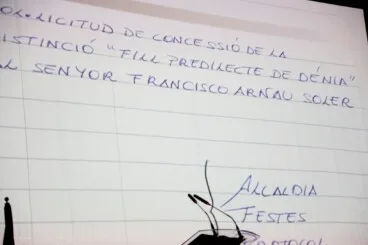 SOL·LICITUD DE CONCESSIÓ DE LA
DISTINCIÓ "FILL PREDILECTE DE DÉNIA"
AL SENYOR FRANCISCO ARNAU SOLER
ALCALDIA
FESTES
PROTOCOL